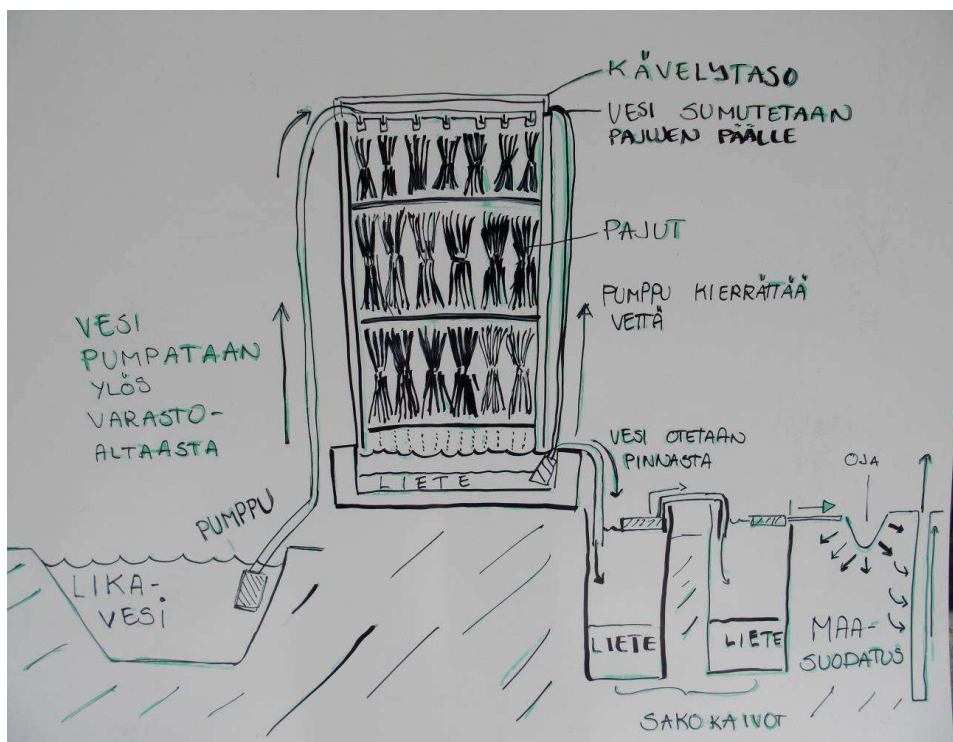 KÄVELYTASO
VESI SUMUTETAAN
PAJUJEN PÄÄLLE
PAJUT
PUMPPU KIERRÄTTÄÄ
VETTÄ
VESI
PUMPATAAN
YLÖS
VARASTO-
ALTAASTA
PUMPPU
LIKA-
VESI
LIETE
VESI OTETAAN
PINNASTA
OJA
LIETE
LIETE
MAA-
SUODATUS
SAKOKAIVOT